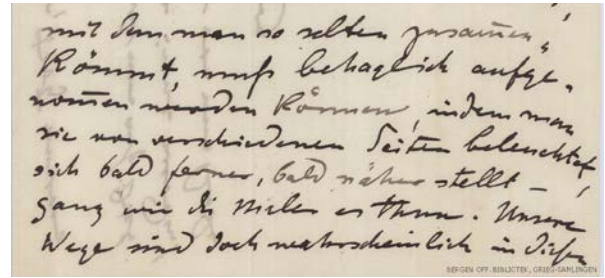 mit dem man so selten zusam̄en„
kömmt, muſs behaglich aufge„
nom̄en werden können, indem man
sie von verschiedenen Seiten beleuchtet,
sich bald ferner, bald näher stellt –
ganz wie die Maler es thun. Unsere
Wege sind doch wahrscheinlich in diesen
BERGEN OFF. BIBLIOTEK, GRIEG-SAMLINGEN